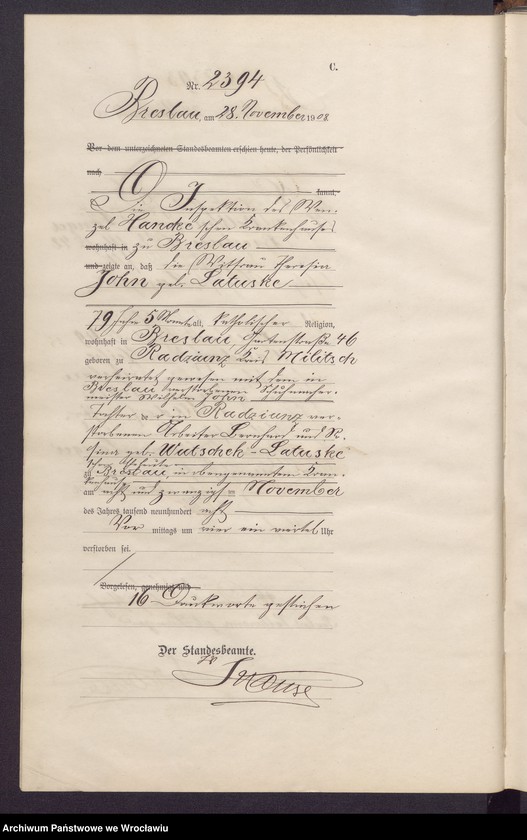 C.
Nr. 2394
Breslau, am 28. November 1908.
Vor dem unterzeichneten Standesbeamten erschien heute, der Persönlichkeit
nach
kannt,
Die Inspektion des Wen-
zel Hancke'schen Krankenhauses
wohnhaft in zu Breslau
und zeigte an, daß die Wittwe Theresia
John geb. Latuske
79 Jahre 5 Monate alt, katholischer Religion,
wohnhaft in Breslau, Gartenstraße 46
geboren zu Radziunz Kreis Militsch
verheiratet gewesen mit dem in
Breslau verstorbenen Schuhmacher-
meister Wilhelm John
Tochter der in Radziunz ver-
storbenen Arbeiter Bernhard und R
geb. Wutschek-Latuske
zu Breslau, in obengenanntem Kran-
kenhause
am acht und zwanzigsten November
des Jahres tausend neunhundert acht
Vor mittags um vier ein viertel Uhr
verstorben sei.
Vorgelesen, genehmigt und
16 Druckworte gestrichen
Der Standesbeamte.